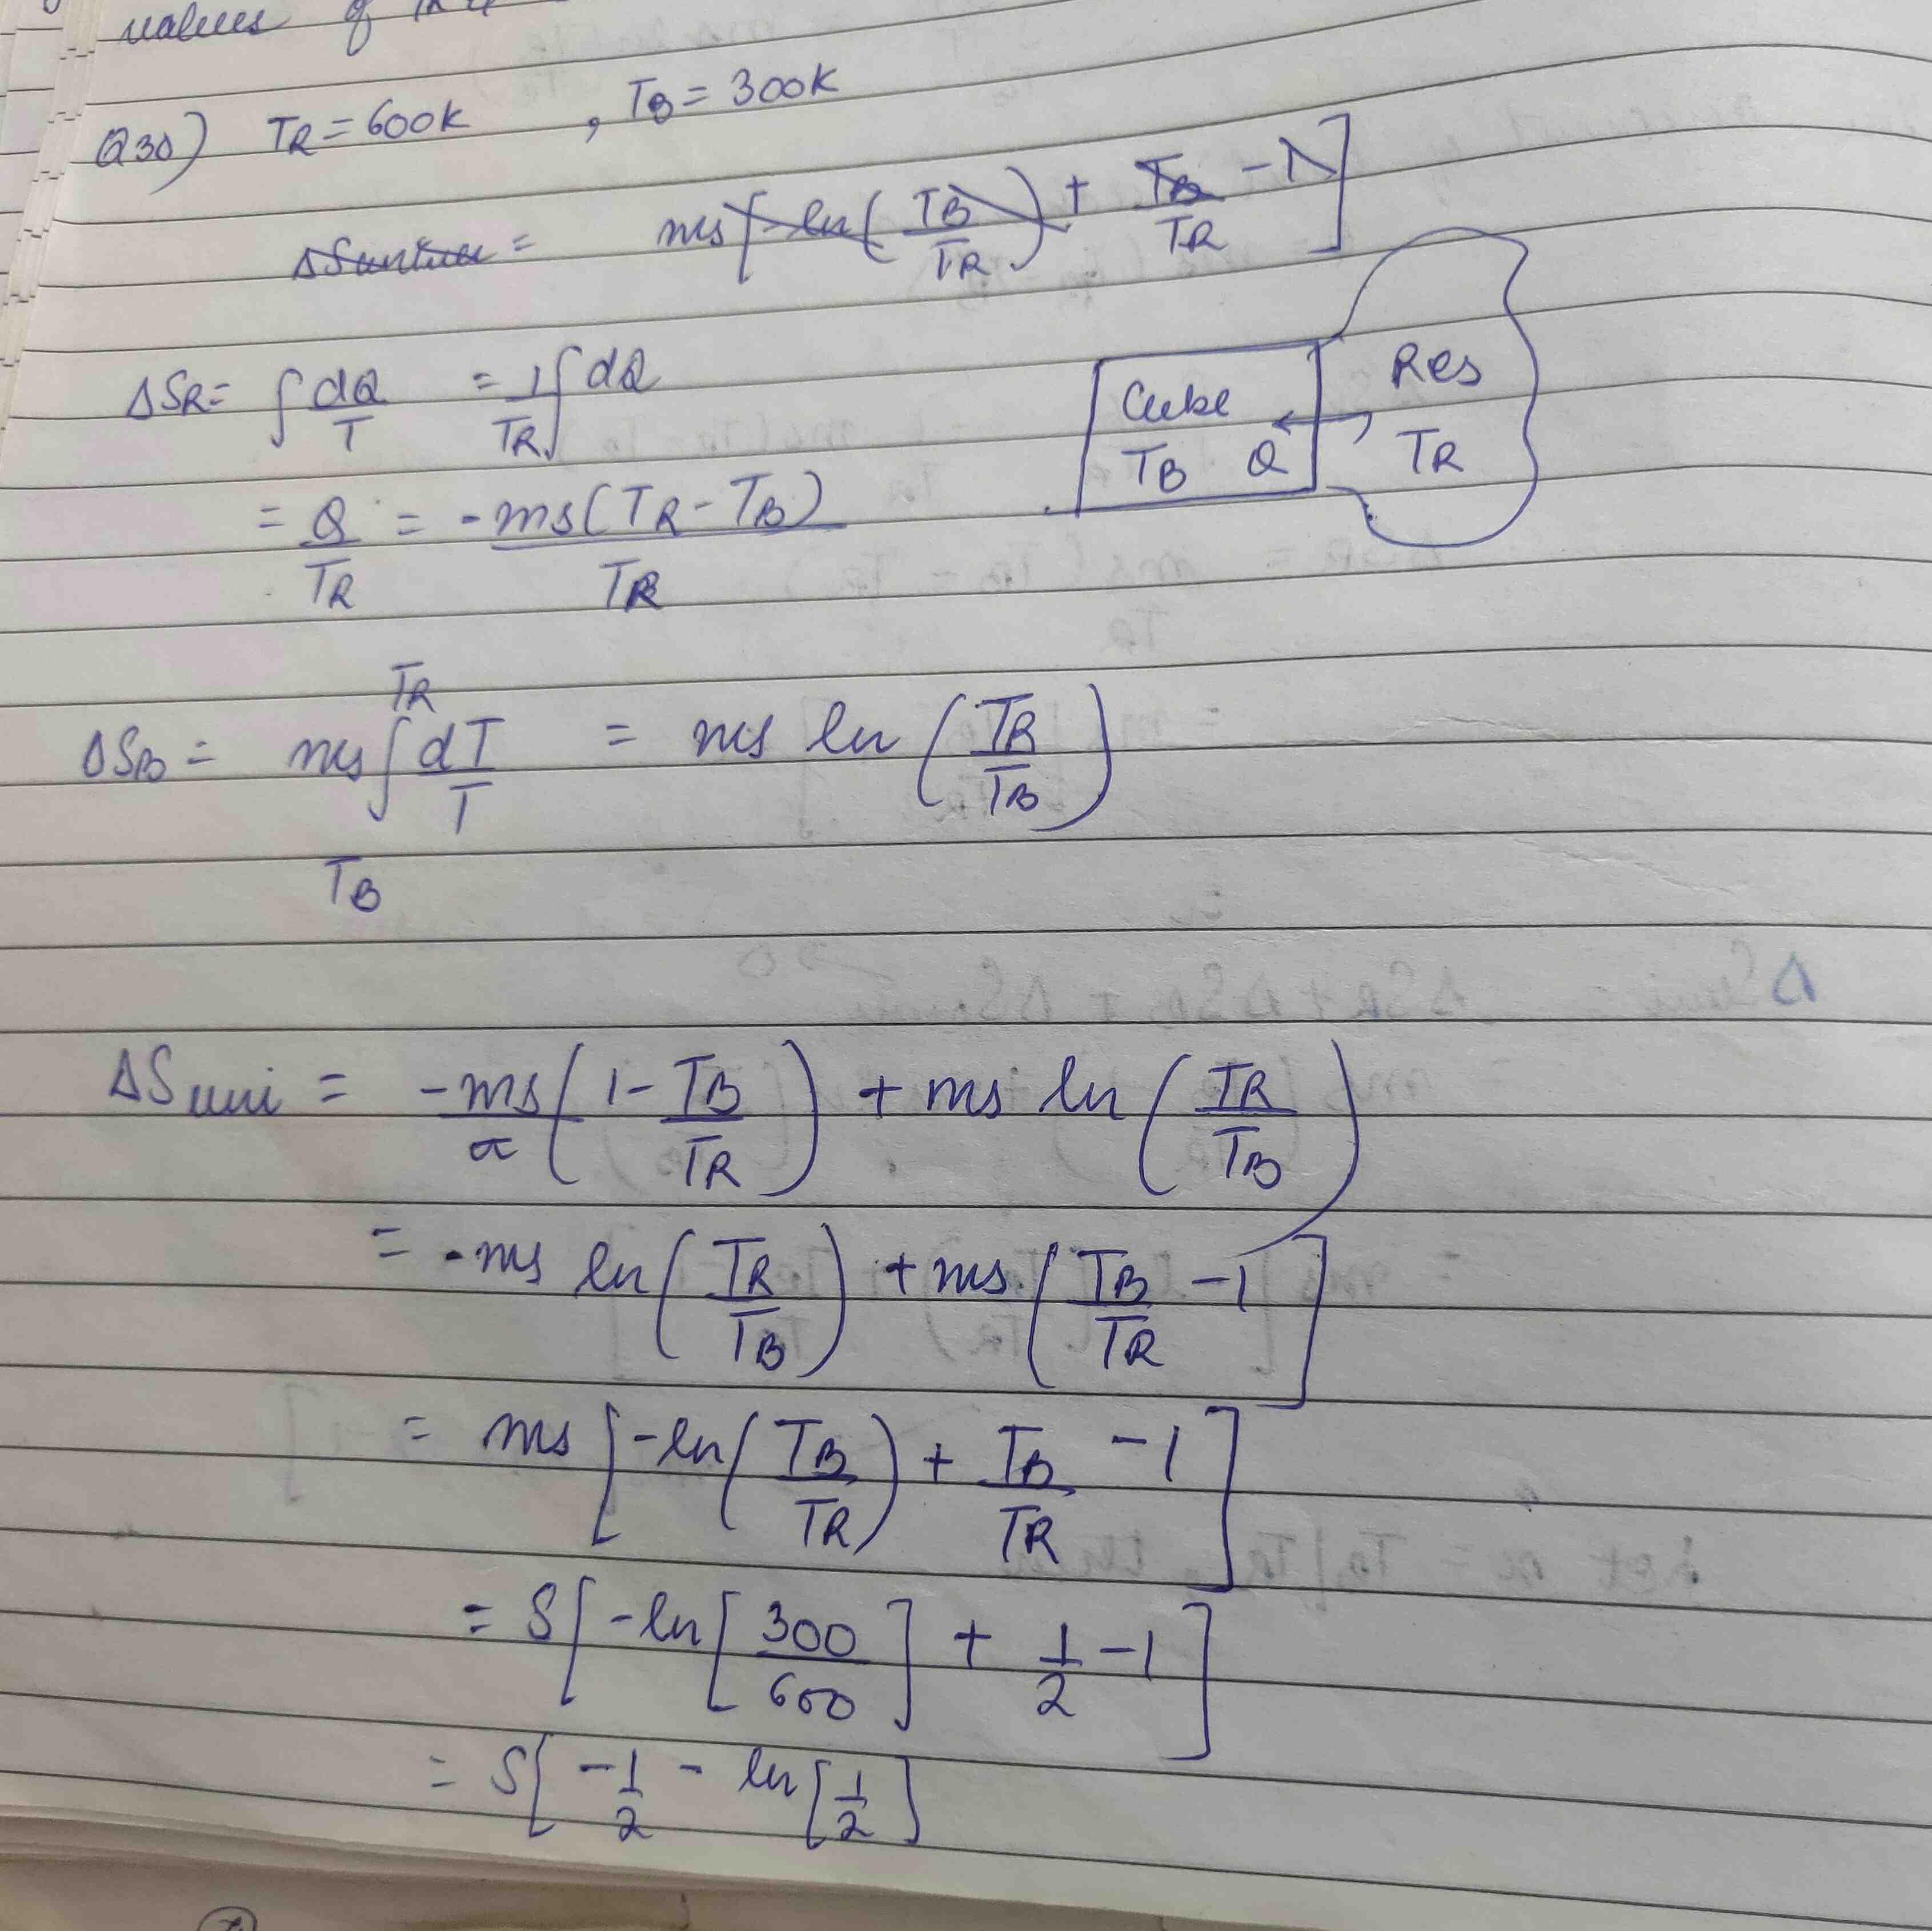 values of
Q30) TR = 600K , TB = 300K
ΔSuniv = ms[-ln(TB/TR) + TB/TR - 1]
ΔSR = ∫ dQ/T = 1/TR ∫ dQ
Cube
TB Q
Res
TR
= Q/TR = -ms(TR - TB)/TR
ΔSB = ms ∫ dT/T = ms ln (TR/TB)
TR
TB
ΔSuni = -ms (1 - TB/TR) + ms ln (TR/TB)
= -ms ln (TR/TB) + ms (TB/TR - 1]
= ms [-ln(TB/TR) + TB/TR - 1]
= S[-ln[300/600] + 1/2 - 1]
= S[-1/2 - ln[1/2]